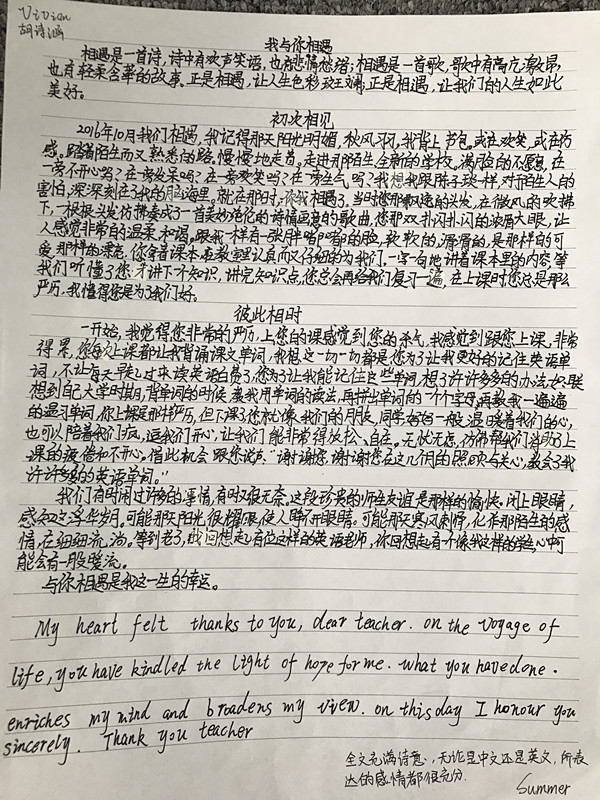 Vivian
胡诗涵
我与你相遇
相遇是一首诗,诗中有欢声笑语,也有悲情愁绪;相遇是一首歌,歌中有高亢激昂,
也有轻柔含蓄的故事。正是相遇,让人生色彩斑斓;正是相遇,让我们的人生如此
美好。
初次相见
2016年10月我们相遇,我记得那天阳光明媚,秋风习习,我背上书包。或在欢笑,或在伤
感。踏着陌生而又熟悉的路。慢慢地走着。走进那陌生,全新的学校。满脸的不愿意,在
一旁不开心吗?在一旁发呆吗?在一旁欢笑吗?在一旁生气吗?我想我跟陈子琰一样,对陌生人的
害怕,深深刻在了我的脑海里。就在那时,你我相遇了。当时您那飘逸的头发,在微风的吹拂
下,一根根头发仿佛奏成了一首美妙绝伦的诗情画意的歌曲,您那双扑闪扑闪的浓眉大眼,让
人感觉非常的温柔和谒。跟我一样有一张胖嘟嘟的脸,软软的,滑滑的,是那样的可
爱,那样的漂亮。你拿着课本在教室里认真而又仔细的为我们一字一句地讲着课本里的内容等
我们听懂了您才讲下个知识,讲完知识点,您总会再给我们复习一遍,在上课时您总是那么
严厉,我懂得您是为了我们好。
彼此相时
一开始,我觉得您非常的严厉,上您的课感觉到您的杀气,我感觉到跟您上课,非常
得累,您每次上课都让我背诵课文单词,我想这一切一切都是您为了让我更好的记住英语单
词,不让每天早起过来读英语白费了,您为了让我能记住这些单词,想了许许多多的办法,如:联
想到自己大学时期,背单词的时候,教我用单词的读法,再拼出单词的一个个字母,再教我一遍遍
的温习单词,你上课是那样严厉,但下课了您就像我们的朋友,同学,好好一般,温暖着我们的心,
也可以陪着我们疯,逗我们开心,让我们能非常得放松,自在。无忧无虑,仿佛帮我们消除了上
课的疲倦和不开心。借此机会,跟您说声:“谢谢您,谢谢您在这几个月的照映与关心,教会了我
许许多多的英语单词。”
我们有时闹过许多的事情,有时又很无奈。这段珍贵的师生友谊是那样的愉快。闭上眼睛,
感知这浮华岁月。可能那天阳光很耀眼,使人睁不开眼睛。可能那天寒风刺骨,化作那陌生的感
情,在细细流淌。等到老了,我回想起有位这样的英语老师,你回想起有个像我这样的学生,心中可
能会有一股暖流。
与你相遇是我这一生的幸运。
My heart felt thanks to you, dear teacher. on the voyage of
life, you have kindled the light of hope for me. what you have done.
enriches my mind and broadens my view. on this day I honour you
sincerely. Thank you teacher
全文充满诗意,无论是中文还是英文,所表
达的感情都很充分.
Summer